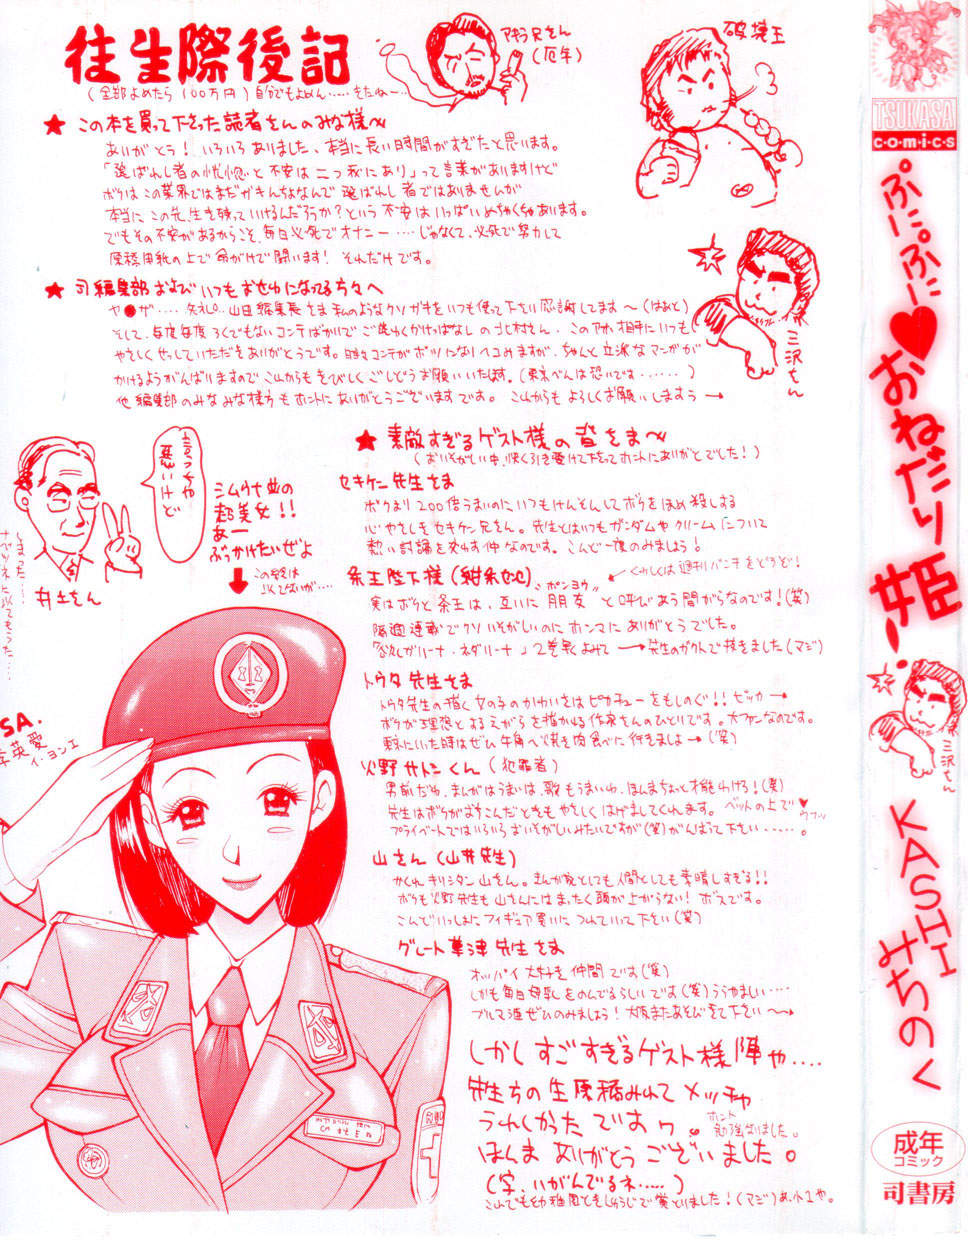 往生際後記
(全部よめたら100万円)自分でもよめん.....きたねー...
アキラ兄さん
(厄年)
破壊王
★ この本を買って下さった読者さんのみな様へ
ありがとう!いろいろありました、本当に長い時間がすぎたと思います。
「選ばれし者の恍惚と不安は二つ我にあり」って言葉がありますけど
ボクはこの業界ではまだガキんちょなんで選ばれし者ではありませんが
本当にこの先、生き残っていけるんだろうか?という不安はいっぱいめちゃくちゃあります。
でもその不安があるからこそ、毎日必死でオナニー....じゃなくて、必死で努力して
原稿用紙の上で命がけで闘います!それだけです。
★ 司編集部およびいつもおせわになってる方々へ
ヤ●ザ....失礼。山田編集長さま 私のようなクソガキをいつも使って下さい感謝してます〜(はぁと)
そして、毎度毎度ろくでもないコンテばかりでご迷わくかけっぱなしの
やさしくせっしていただきありがとうです。時々コンテがボツになりヘコみますが、ちゃんと立派なマンガが
かけるようがんばりますのでこれからもきびしくごしどうお願いいたします。(東京べんは恐いです......)
他編集部のみなみな様方もホントにありがとうございますです。これからもよろしくお願いしますぅ→
三沢さん
★ 素敵すぎるゲスト様の皆さま〜
(おいそがしい中、快く引き受けて下さってホントにありがとでした!)
セキケン先生さま
ボクより200倍うまいのにいつもけんそんしてボクをほめ殺しする
心やさしきセキケン兄さん。先生とはいつもガンダムやクリームについて
熱い討論を交わす仲なのです。こんど一度のみましょう!
言っちゃ
悪いけど
井上さん
シムラヤ並の
超美女!!
あー
ぶっかけたいぜよ
この絵は
似てないが....
条王陛下様(紺条せせ)
くわしくは週刊パンチをどうぞ!
ポンヨウ
実はボクと条王は、互いに"朋友"と呼びあう間がらなのです!(笑)
隔週連載でクソいそがしいのにホンマにありがとうでした。
「欲しがリーナ・ネダリーナ」2巻早くよみて→先生のガクトで抜きました(マジ)
トウタ先生さま
トウタ先生の描く女の子のかわいさはピカチューをもしのぐ!!ピッカー→
ボクが理想とするえがらを描かれる作家さんのひとりです。大ファンなのです。
東京にいた時はぜひ牛角へ焼き肉食べに行きましょ→(笑)
火野サトシくん(犯罪者)
男前だわ、まんがはうまいは、歌もうまいわ、ほんまちょっと才能わけろ!(笑)
先生はボクがおちこんだときもやさしくはげましてくれます。ベットの上で♥ウフッ
プライベートではいろいろおいそがしいみたいですが(笑)がんばって下さい.....。
山さん(山井先生)
かくれキリシタン山さん。まんが家としても人間としても素晴しすぎる!!
ボクも火野先生も山さんにはまったく頭が上がらない!ボスです。
こんどいっしょにフィギュア買いにつれていって下さい(笑)
グレート草津先生さま
オッパイ大好き仲間です(笑)
しかも毎日母乳をのんでるらしいです(笑)うらやましい....
ブルマ酒ぜひのみましょう!大阪またあそびきて下さい〜→
しかしすごすぎるゲスト様陣や....
先生方の生原稿みれてメッチャ
うれしかったですゥ。
ホント
勉強なりました。
ほんまありがとうございました。
(字、いがんでるネ.....)
これでも幼稚園ときしゅうじで賞とりました!(マジ)あ、小1や。
SA.
李英愛
イ・ヨンエ
TSUKASA
c・o・m・i・c・s
ぷにぷに♥おねだり姫
三沢さん
KASHIみちのく
成年
コミック
司書房